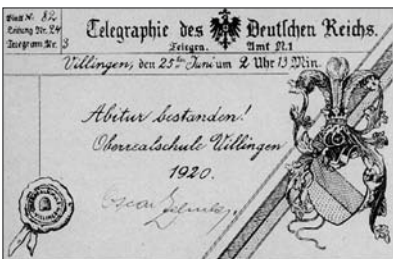 Blatt Nr. 82
Leitung Nr. 24
Telegram Nr. 3
Telegraphie des Deutschen Reichs.
Telegra. Amt N.1
Villingen, den 25ten Juni um 2 Uhr 13 Min.
Abitur bestanden!
Oberrealschule Villingen
1920.
Oscar
VILLINGEN